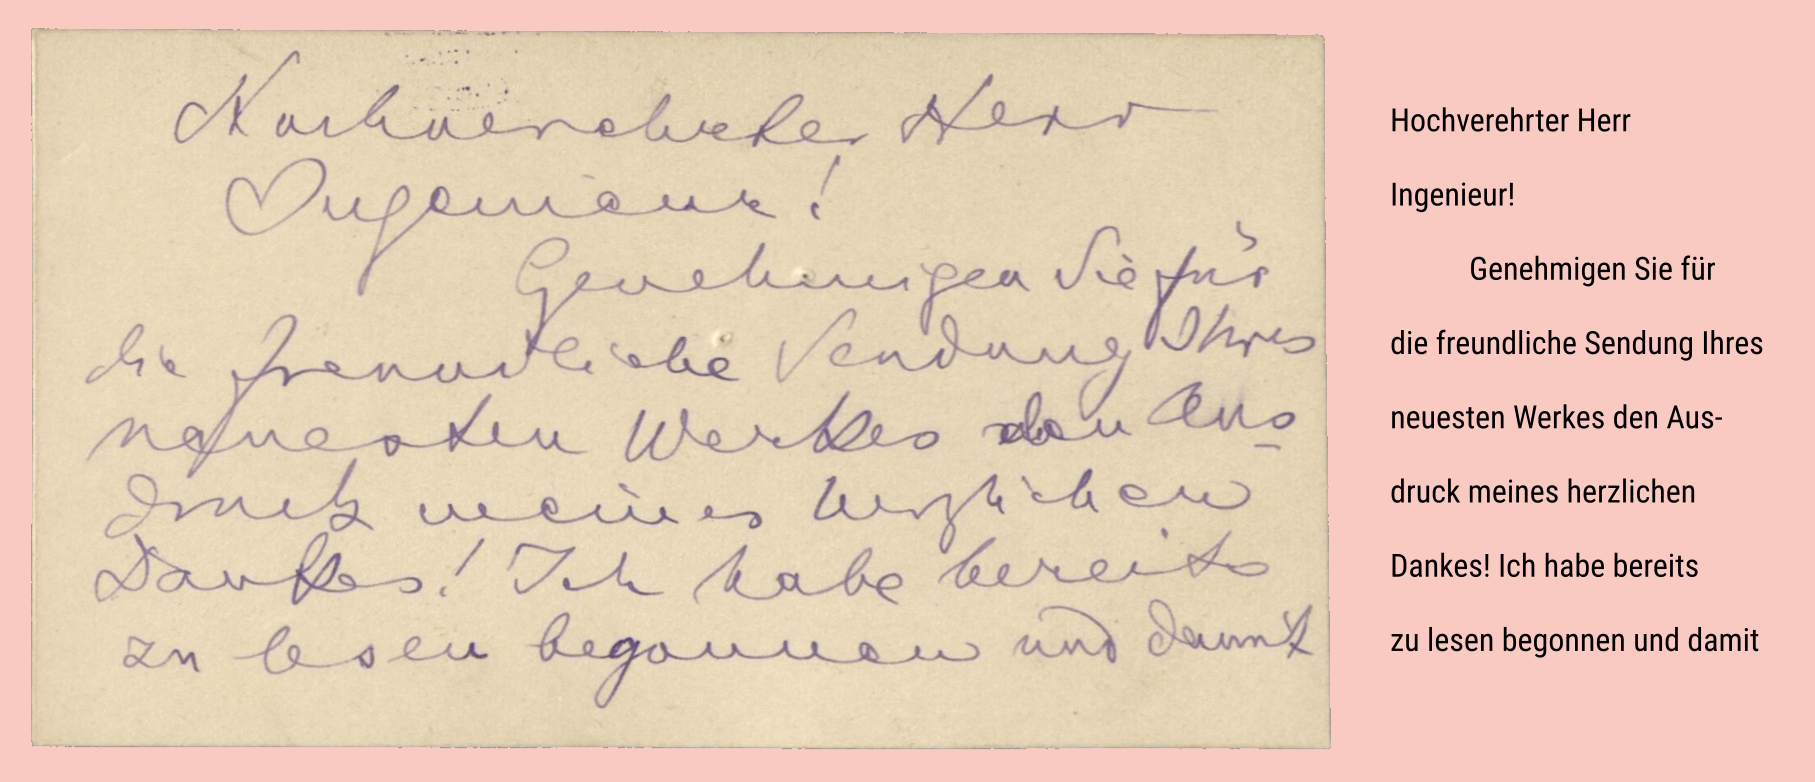 Hochverehrter Herr
Ingenieur!
Genehmigen Sie für
die freundliche Sendung Ihres
neuesten Werkes den Aus-
druck meines herzlichen
Dankes! Ich habe bereits
zu lesen begonnen und damit
Hochverehrter Herr
Ingenieur!
Genehmigen Sie für
die freundliche Sendung Ihres
neuesten Werkes den Aus-
druck meines herzlichen
Dankes! Ich habe bereits
zu lesen begonnen und damit